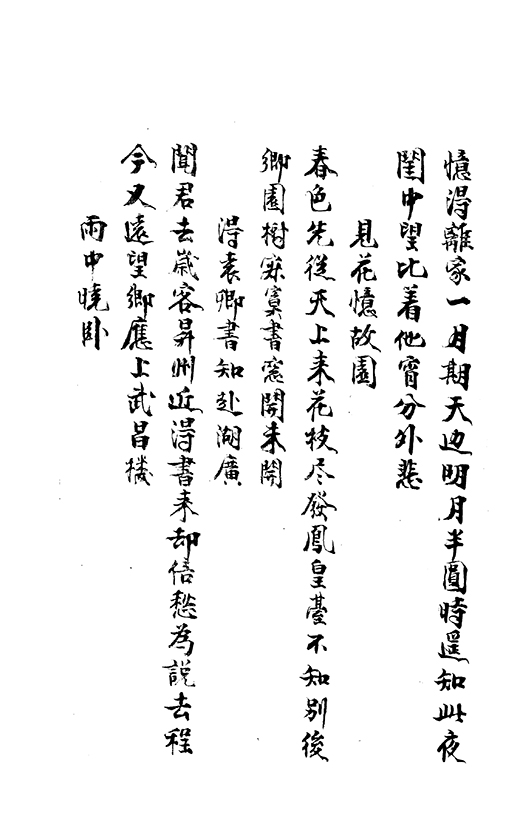 憶得離家一月期天边明月半圓時遥知此夜
閨中望比着他宵分外悲
見花憶故園
春色先從天上来花枝尽發鳳皇臺不知別後
鄉園樹寂寞書窓開未開
得袁卿書知赴湖廣
聞君去歲客昇州近得書来却倍愁為說去程
今又遠望鄉應上武昌楼
雨中曉卧